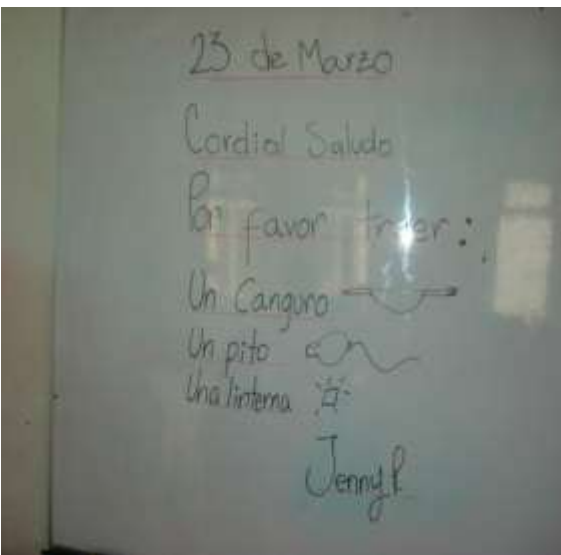 23 de Marzo
Cordial Saludo
Por favor traer:
Un Canguro
Un pito
Una linterna
Jenny P.